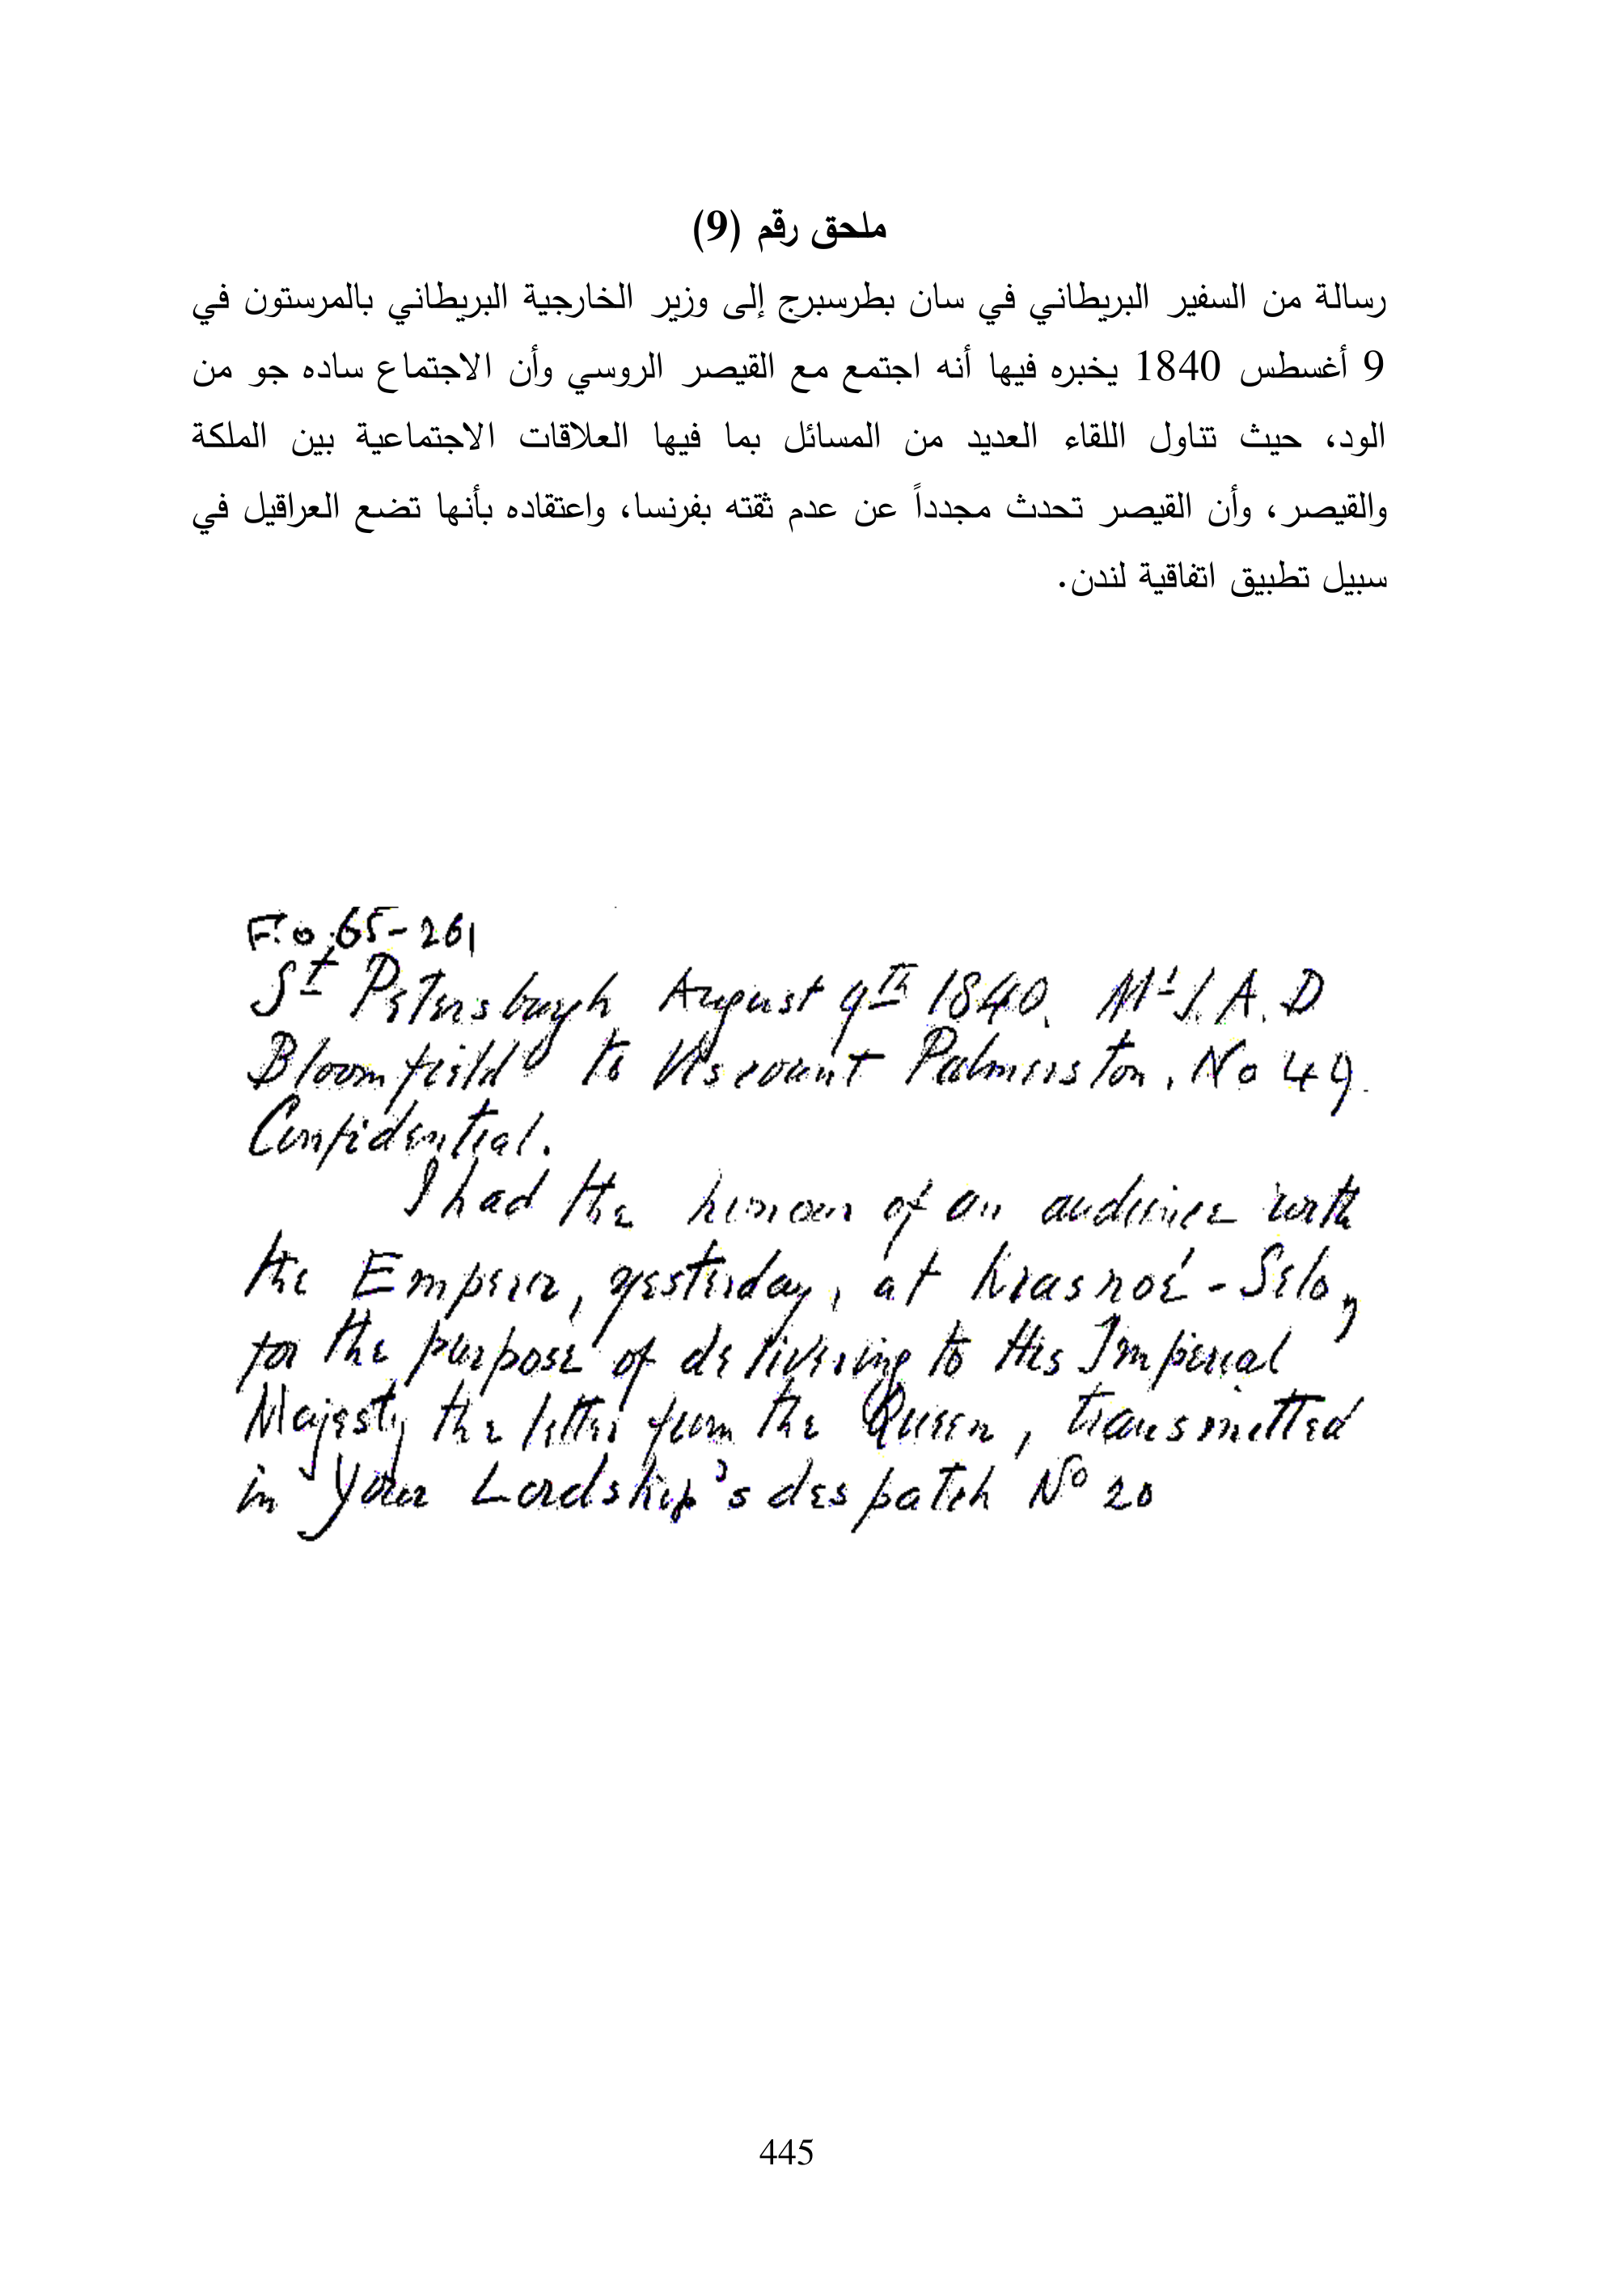 ملحق رقم (9)
رسالة من السفير البريطاني في سان بطرسبرج إلى وزير الخارجية البريطاني بالمرستون في
9 أغسطس 1840 يخبره فيها أنه اجتمع مع القيصر الروسي وأن الاجتماع ساده جو من
الود، حيث تناول اللقاء العديد من المسائل بما فيها العلاقات الاجتماعية بين الملكة
والقيصر، وأن القيصر تحدث مجدداً عن عدم ثقته بفرنسا، واعتقاده بأنها تضع العراقيل في
سبيل تطبيق اتفاقية لندن.
F.O. 65-261
St Petersburgh August 9th 1840. Mr J.A.D
Bloomfield to Viscount Palmerston. No 49.
Confidential.
I had the honour of an audience with
the Emperor, yesterday, at Krasnoé-Selo,
for the purpose of delivering to His Imperial
Majesty the letter from the Queen, transmitted
in Your Lordship's despatch No 20
445